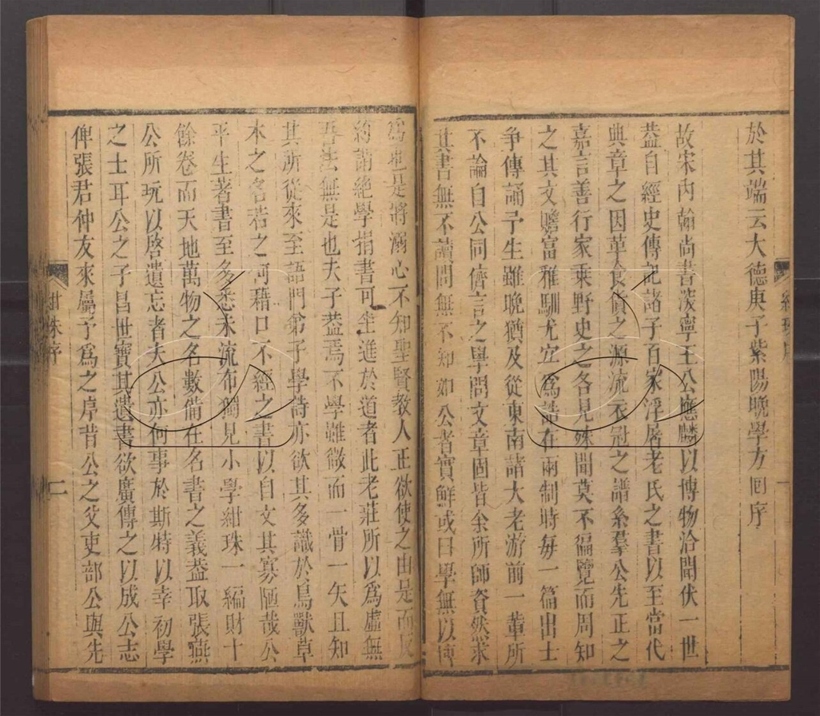 於其端云大德庚子紫陽晚學方回序
故宋內翰尚書浚寧王公應麟以博物洽聞伏一世
葢自經史傳記諸子百家浮屠老氏之書以至當代
典章之因革食貨之源流衣冠之譜系羣公先正之
嘉言善行家乗野史之各見殊聞莫不徧覽而周知
之其文贍富雅馴尤宜爲誥在兩制時每一篇出士
争傳誦予生雖晚猶及從東南諸大老游前一輩所
不論自公同儕言之學問文章固皆余所師資然求
其書無不讀問無不知如公者實鮮或曰學無以博
爲也是將溺心不知聖賢教人正欲使之由是而反
約謂絶學捐書可坐進於道者此老莊所以爲虛無
吾法無是也夫子葢焉不學雖微而一骨一矢且知
其所從來至語門弟子學詩亦欲其多識於鳥獸草
木之名若之何藉口不經之書以自文其寡陋哉公
平生著書至多悉未流布獨見小學紺珠一編財十
餘卷而天地萬物之名數備在名書之義葢取張燕
公所玩以啓遺忘者夫公亦何事於斯特以幸初學
之士耳公之子昌世寶其遺書欲廣傳之以成公志
俾張君仲友來屬予爲之序昔公之父吏部公與先
紺珠序
二